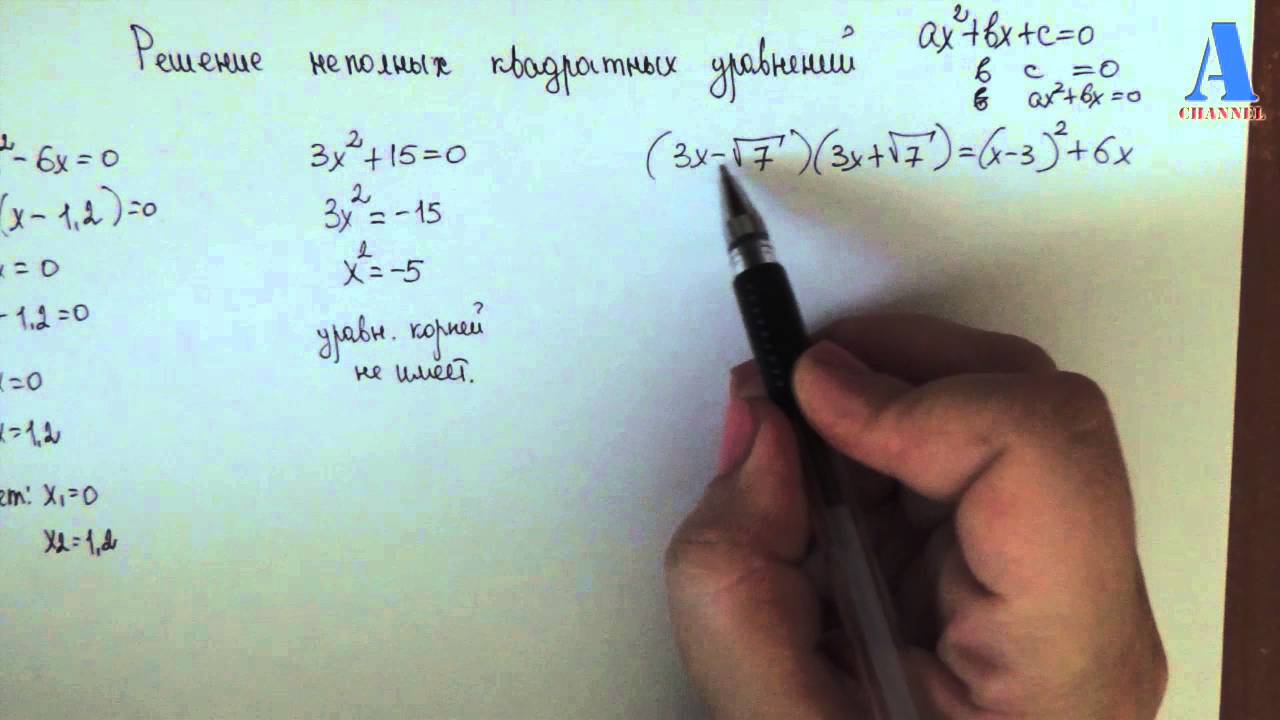 Решение неполных квадратных уравнений
ax²+bx+c=0
в c =0
в ax²+bx=0
A
CHANNEL
²-6x=0
(x-1,2)=0
x=0
-1,2=0
x=0
x=1,2
ет: x₁=0
x2=1,2
3x²+15=0
3x²=-15
x²=-5
уравн. корней
не имеет.
(3x-√7)(3x+√7)=(x-3)²+6x